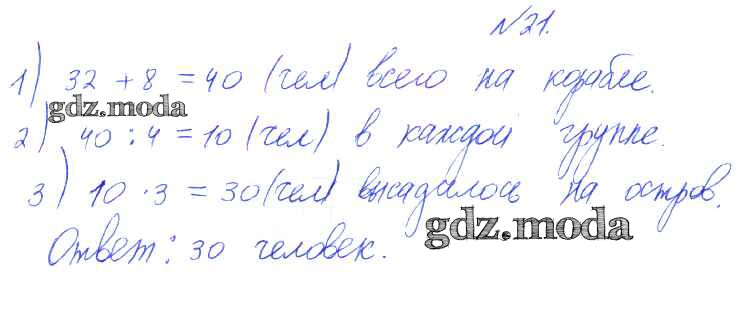 №21.
1) 32 + 8 = 40 (чел) всего на корабле.
gdz.moda
2) 40 : 4 = 10 (чел) в каждой группе.
3) 10 · 3 = 30 (чел) высадилось на остров.
gdz.moda
Ответ: 30 человек.